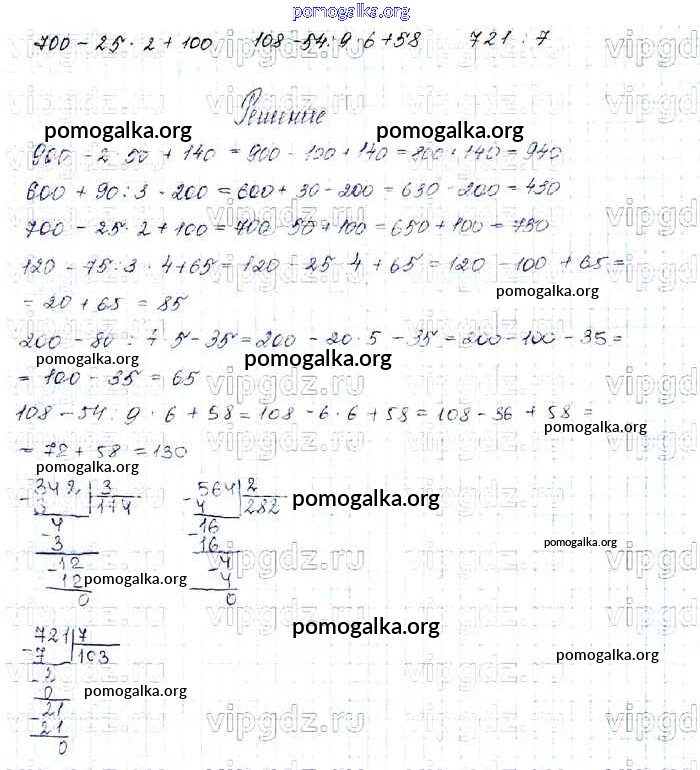 pomogalka.org
700 - 25 · 2 + 100 108 - 54 : 9 · 6 + 58 721 : 7
Решение
pomogalka.org pomogalka.org
900 - 2 · 50 + 140 = 900 - 100 + 140 = 800 + 140 = 940
600 + 90 : 3 - 200 = 600 + 30 - 200 = 630 - 200 = 430
700 - 25 · 2 + 100 = 700 - 50 + 100 = 650 + 100 = 750
120 - 75 : 3 · 4 + 65 = 120 - 25 · 4 + 65 = 120 - 100 + 65 =
pomogalka.org
= 20 + 65 = 85
200 - 80 : 4 · 5 - 35 = 200 - 20 · 5 - 35 = 200 - 100 - 35 =
pomogalka.org pomogalka.org
= 100 - 35 = 65
108 - 54 : 9 · 6 + 58 = 108 - 6 · 6 + 58 = 108 - 36 + 58 =
pomogalka.org
= 72 + 58 = 130
pomogalka.org
342 3 564 2
3 114 4 282
pomogalka.org
4 16
3 16
pomogalka.org
12 4
12 4
pomogalka.org
0 0
pomogalka.org
721 7
7 103
pomogalka.org
2
0
pomogalka.org
21
21
0
pomogalka.org
vipgdz.ru